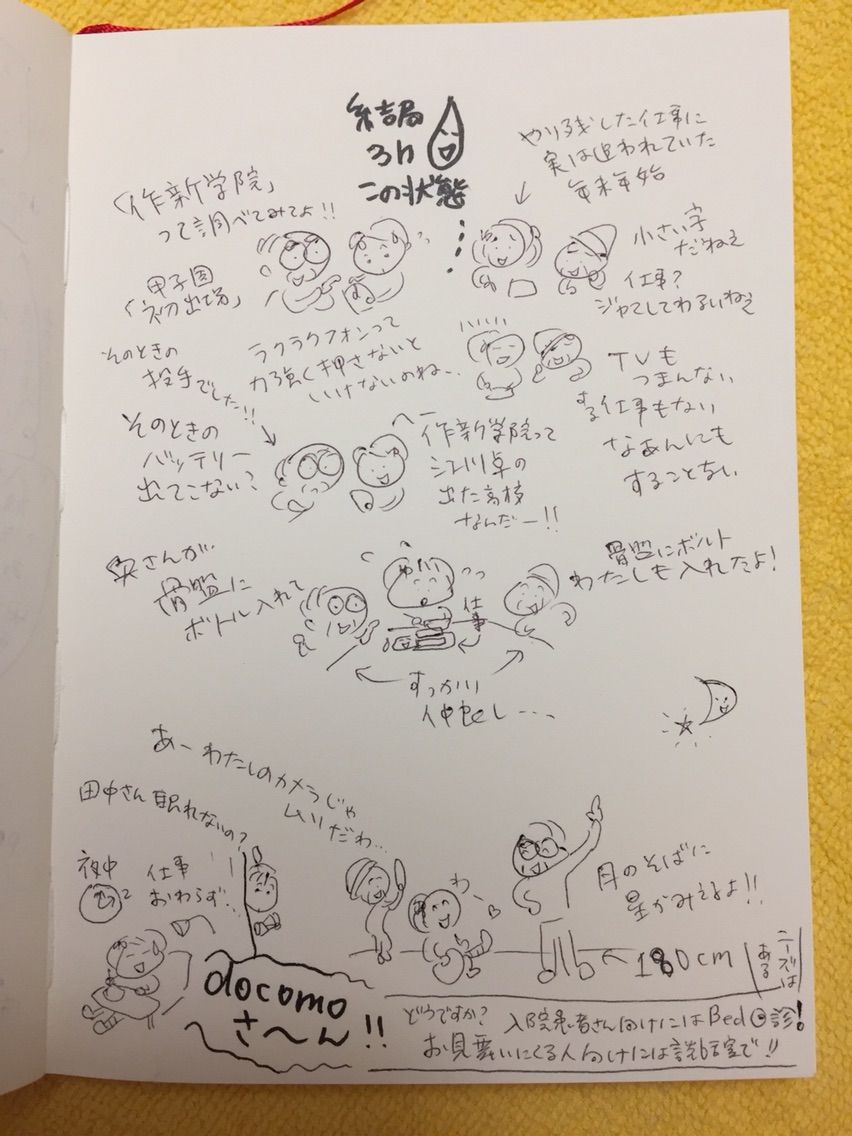 結局
3h
この状態
やり残した仕事に
実は追われていた
年末年始
「作新学院」
って調べてみてよ!!
小さい字
だねえ
仕事?
ジャマしてわるいねえ
甲子園
「初出場」
そのときの
投手でした!!
ラクラクフォンって
力強く押さないと
いけないのね…
TVも
つまんない
する仕事もない
なあんにも
することない
そのときの
バッテリー
出てこない?
作新学院って
江川卓の
出た高校
なんだー!!
奥さんが
骨盤に
ボトル入れて
仕事
骨盤にボルト
わたしも入れたよ!
すっかり
仲良し…
あーわたしのカメラじゃ
ムリだわ…
田中さん眠れないの?
夜中
2
仕事
おわらず…
わー
月のそばに
星がみえるよ!!
180cm
ニーズは
ある
docomo
さ〜ん!!
どうですか?
入院患者さん向けにはBed回診!
お見舞いにくる人向けには談話室で!!